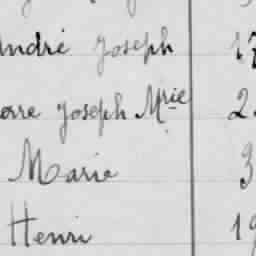 André Joseph 17
Joseph Mrie 2
Marie 3
Henri 19